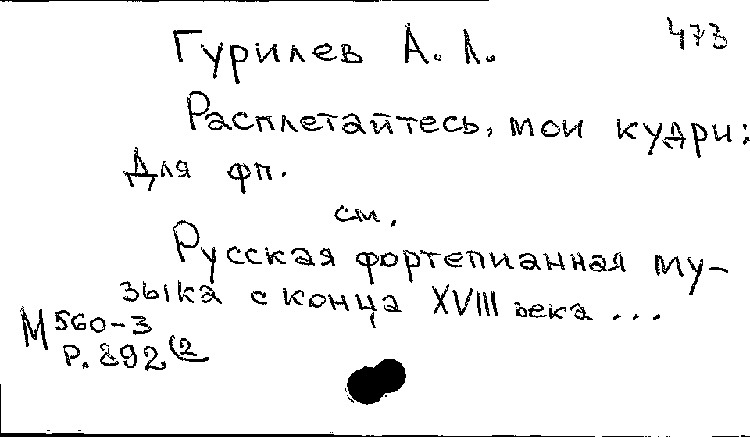 473
Гурилев А. Л.
Расплетайтесь, мои кудри:
Для фп.
см.
Русская фортепианная му-
зыка с конца XVIII века ...
М 560-3
Р. 892 (2